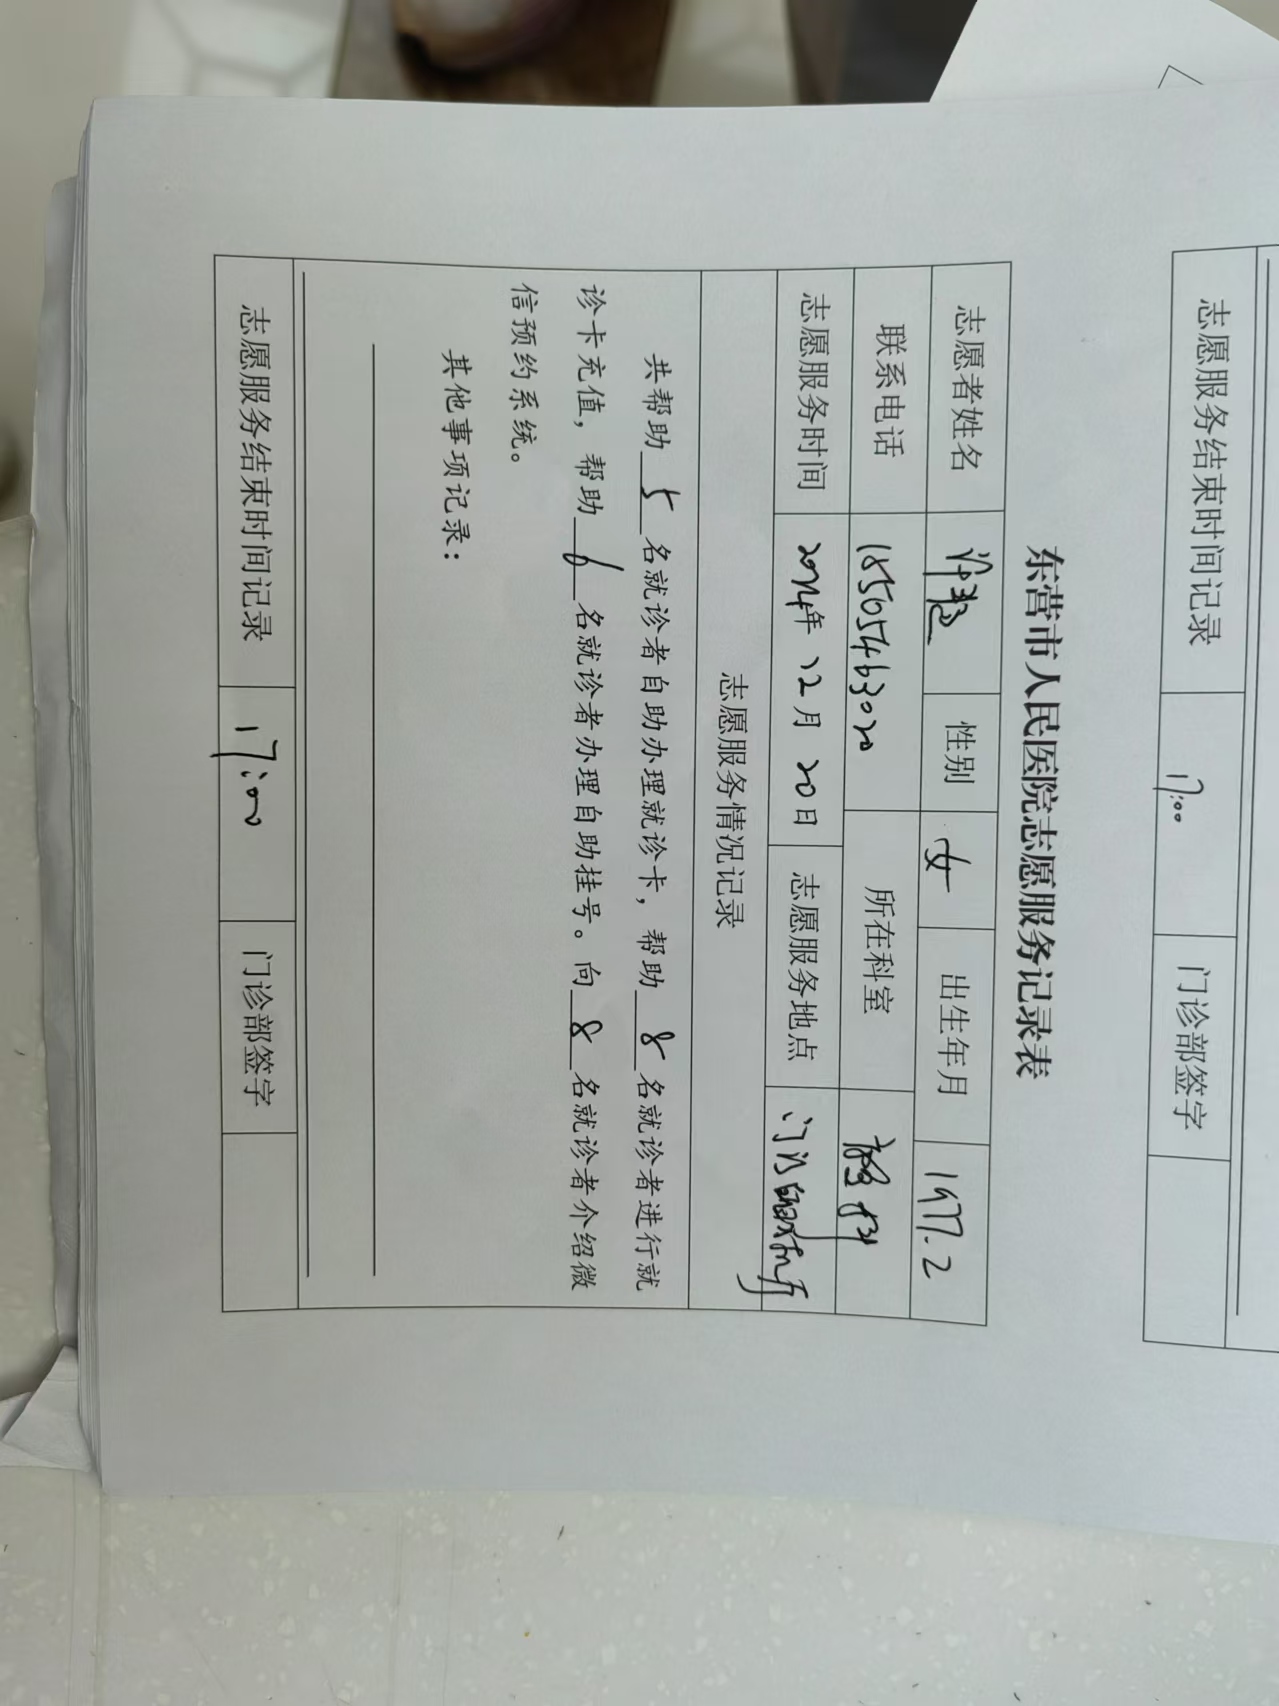 志愿服务结束时间记录 17:00 门诊部签字
东营市人民医院志愿服务记录表
志愿者姓名 性别 女 出生年月 1977.2
联系电话 18505463020 所在科室
志愿服务时间 2024年 12月 20日 志愿服务地点
志愿服务情况记录
共帮助 5 名就诊者自助办理就诊卡，帮助 8 名就诊者进行就
诊卡充值，帮助 6 名就诊者办理自助挂号。向 8 名就诊者介绍微
信预约系统。
其他事项记录：
志愿服务结束时间记录 17:00 门诊部签字